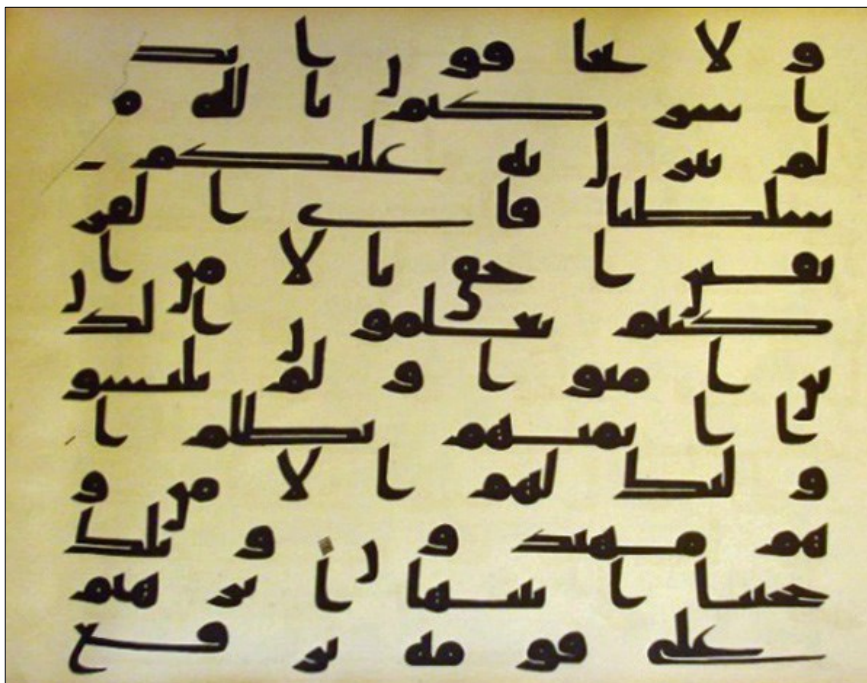 ولا تخافون انك
اشركتم بالله م
لم ينزل به عليكم
سلطنا فاي الفر
يقين احق بالامن ان
كنتم تعلمون الذ
ين امنوا ولم يلبسو
ا ايمنهم بظلم ا
ولئك لهم الامن و
هم مهتدون وتلك
حجتنا اتينها ابرهيم
على قومه نرفع